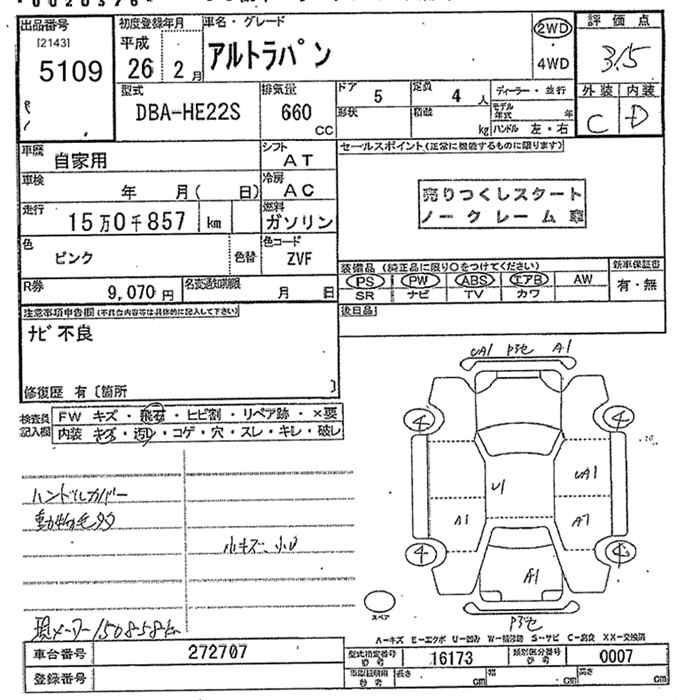 出品番号
[2143]
5109
初度登録年月
平成
26 2月
車名・グレード
アルトラパン
2WD
・
4WD
評価点
3.5
外装 内装
C D
型式
DBA-HE22S
排気量
660
CC
ドア 5
形状
定員 4 人
積載 kg
ディーラー・並行
モデル年式 年
ハンドル 左・右
車歴 自家用
シフト AT
車検 年 月( 日)
冷房 AC
走行 15万0千857 km
燃料 ガソリン
色 ピンク 色替
色コード ZVF
R券 9,070円
名変通知期限 月 日
セールスポイント(正常に機能するものに限ります)
売りつくしスタート
ノークレーム車
装備品(純正品に限り○をつけてください)
新車保証書
PS PW ABS エアB AW
SR ナビ TV カワ
有・無
後日品
注意事項申告欄(不具合内容等は具体的に記入して下さい)
ナビ不良
修復歴 有〔箇所 〕
検査員記入欄
FW キズ・飛石・ヒビ割・リペア跡・×要
内装 キズ・汚れ・コゲ・穴・スレ・キレ・破レ
ハンドルカバー
動物毛
小キズ、小U
現メーター150858km
UA1 A1
4 4
UA1
U1
A1 A1
4 4
A1
スペア
A-キズ E-エクボ U-凹み W-補修跡 S-サビ C-腐食 XX-交換済
車台番号 272707
登録番号
型式指定番号 参考 16173
類別区分番号 参考 0007
参考 長さ cm 幅 cm 高さ cm